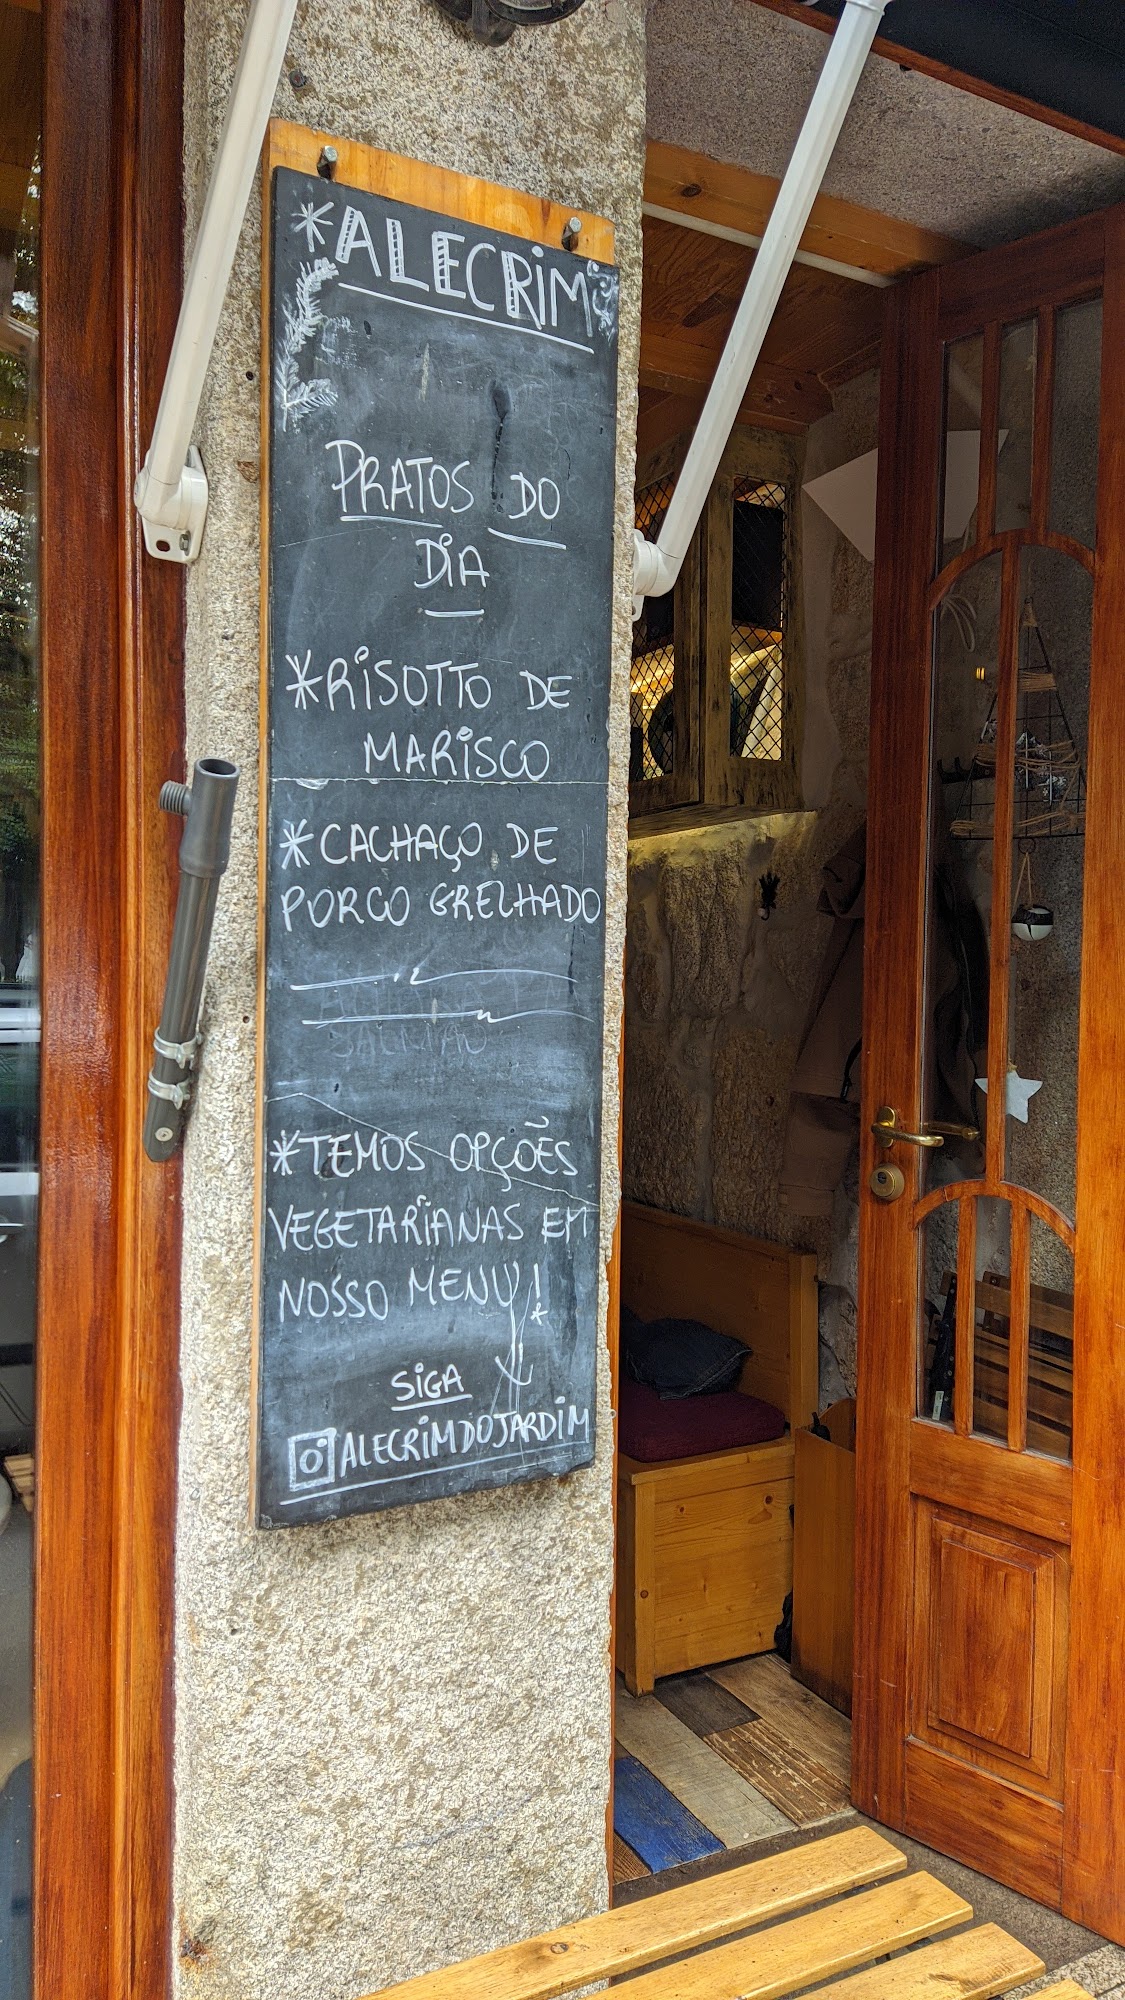 *ALECRIM
PRATOS DO
DIA
*RISOTTO DE
MARISCO
*CACHAÇO DE
PORCO GRELHADO
*TEMOS OPÇÕES
VEGETARIANAS EM
NOSSO MENU!
SIGA
ALECRIMDOJARDIM